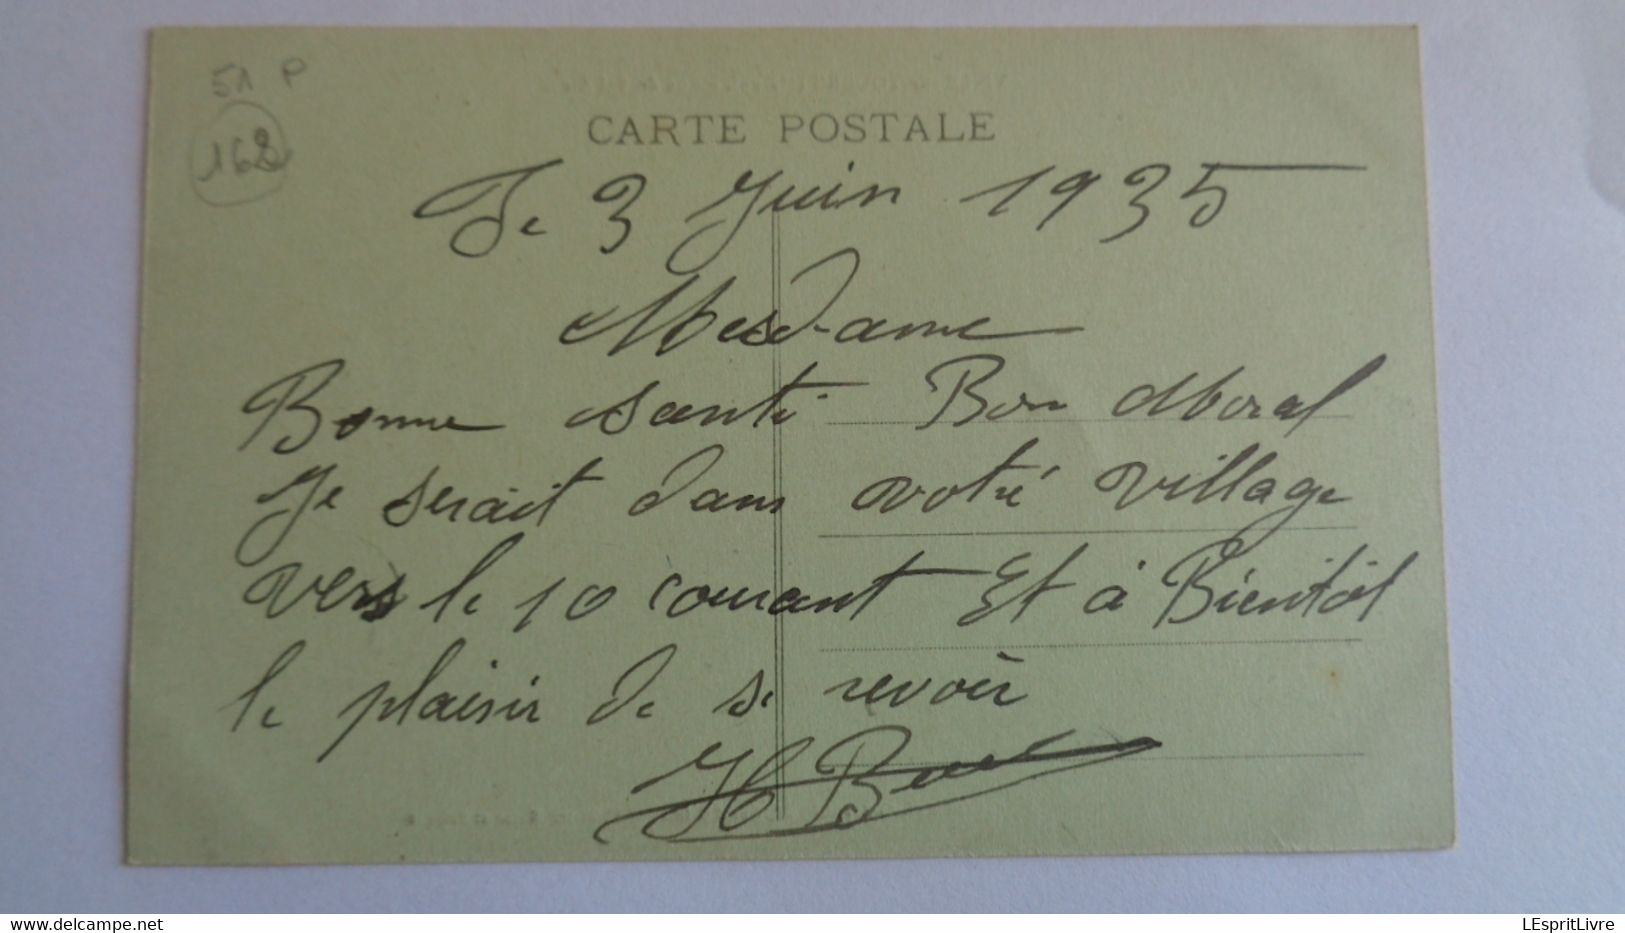 51 P
162
CARTE POSTALE
Le 3 Juin 1935
Mesdame
Bonne santé Bon Moral
Je serait dans votré village
vers le 10 courant Et à Bientôt
le plaisir de se revoir
H
LEspritLivre
www.delcampe.net